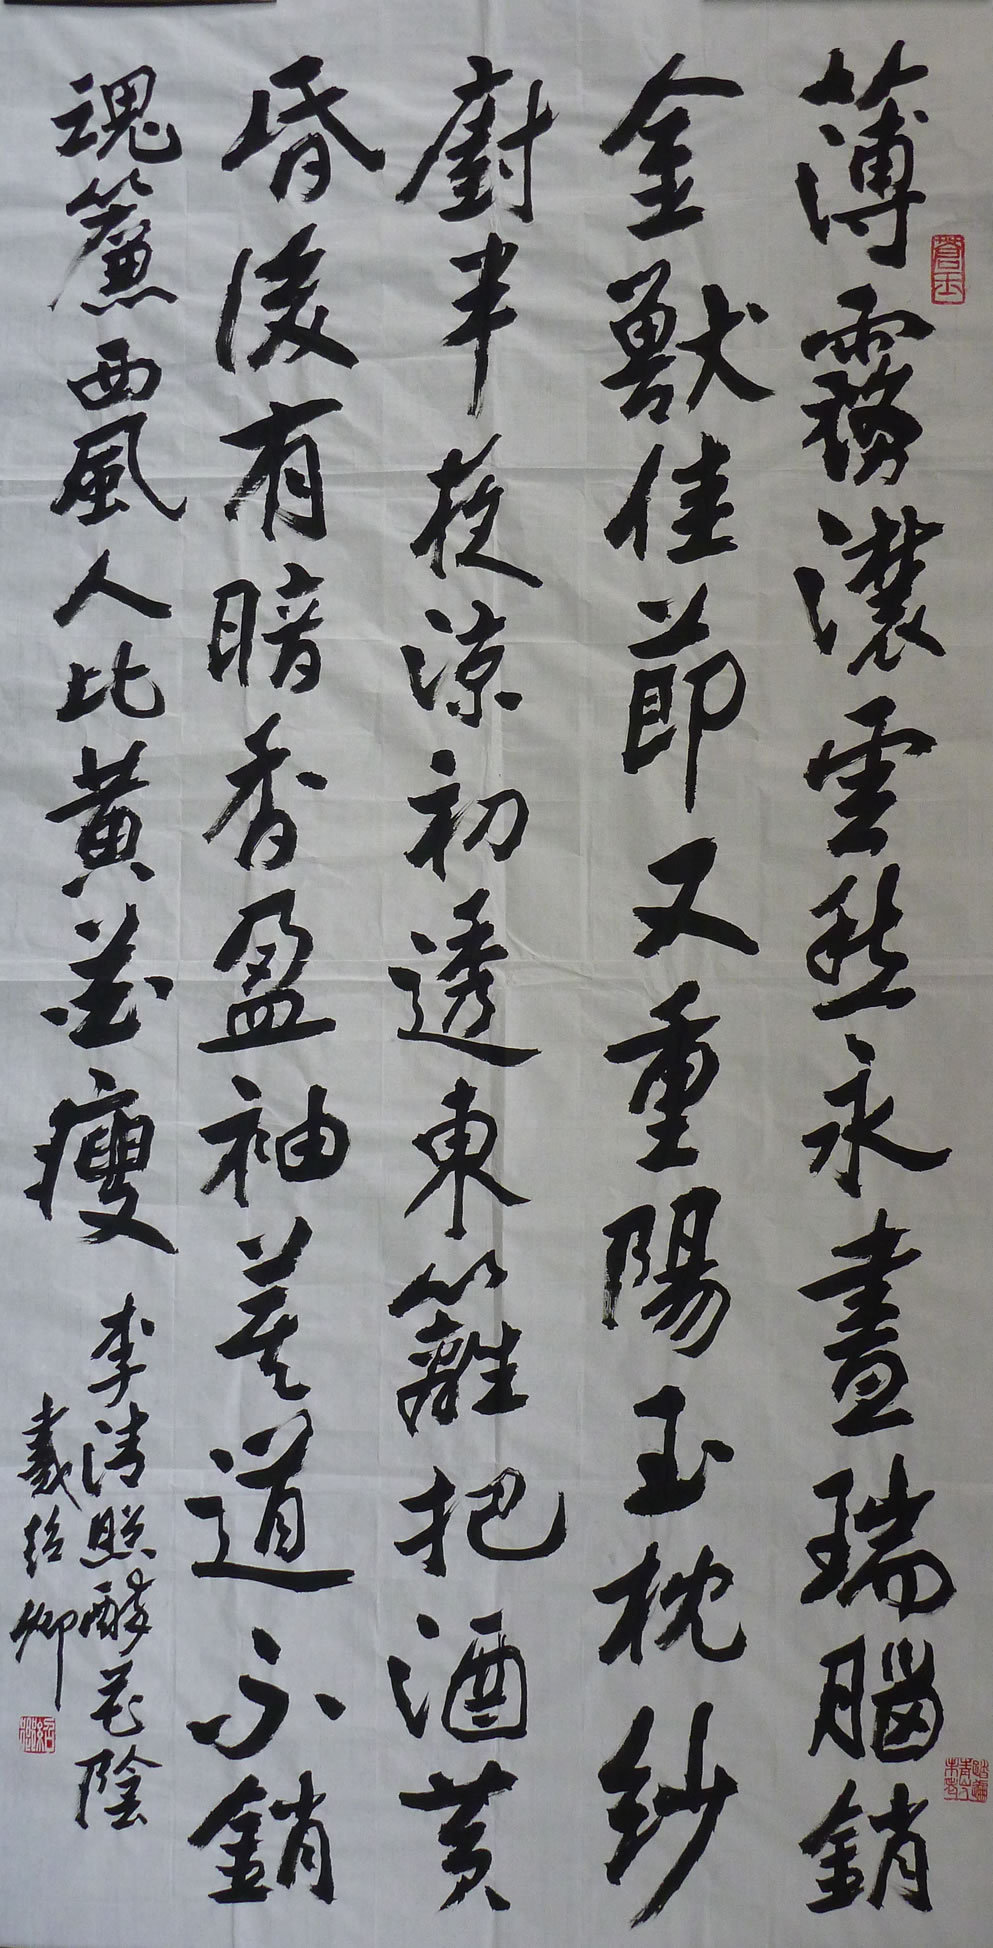 薄霧濃雲愁永晝瑞腦銷
金獸佳節又重陽玉枕紗
廚半夜涼初透東籬把酒黃
昏後有暗香盈袖莫道不銷
魂簾西風人比黃花瘦
李清照醉花陰
戴紹卿